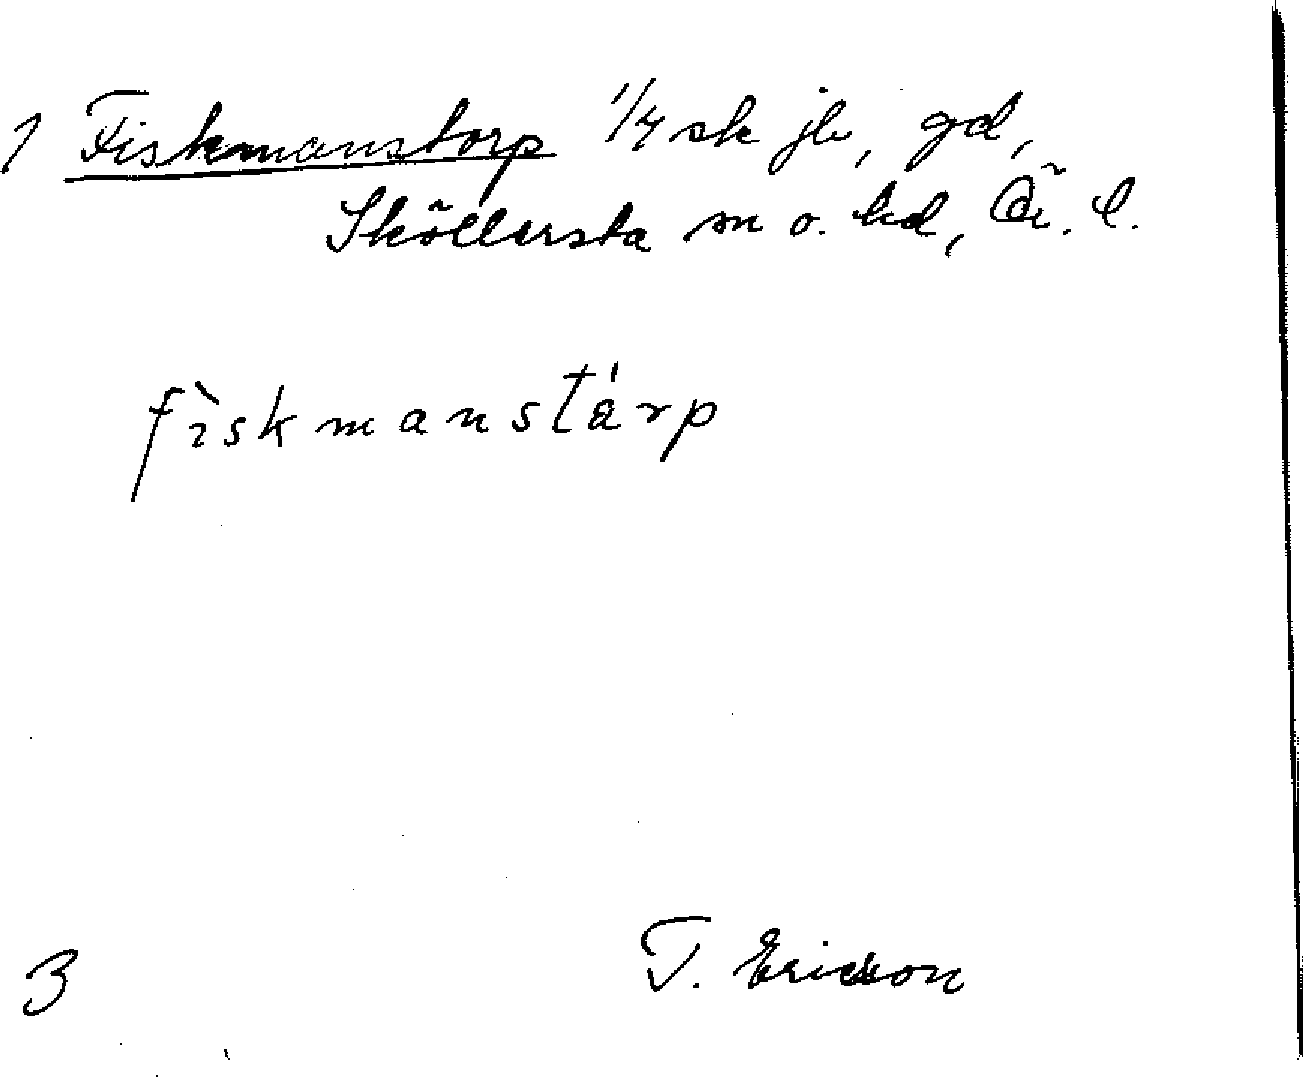 1 Fiskmanstorp 1/4 sk jb, gd,
Sköllersta sn o. hd, Ör. l.
fìskmanstárp
3 T. Ericson